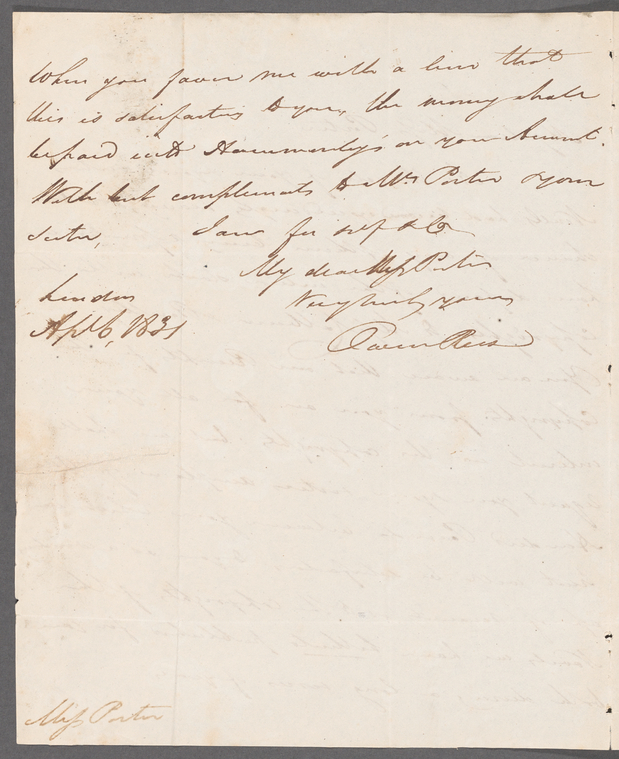 When you favor me with a line that
this is satisfactory to you, the money shall
be paid into Hammersley's on your Account.
With best compliments to Mrs Porter & your
Sister, I am for self & Co
My dear Miss Porter
Very truly yours
Owen Rees
London
Apl 6, 1831
Miss Porter